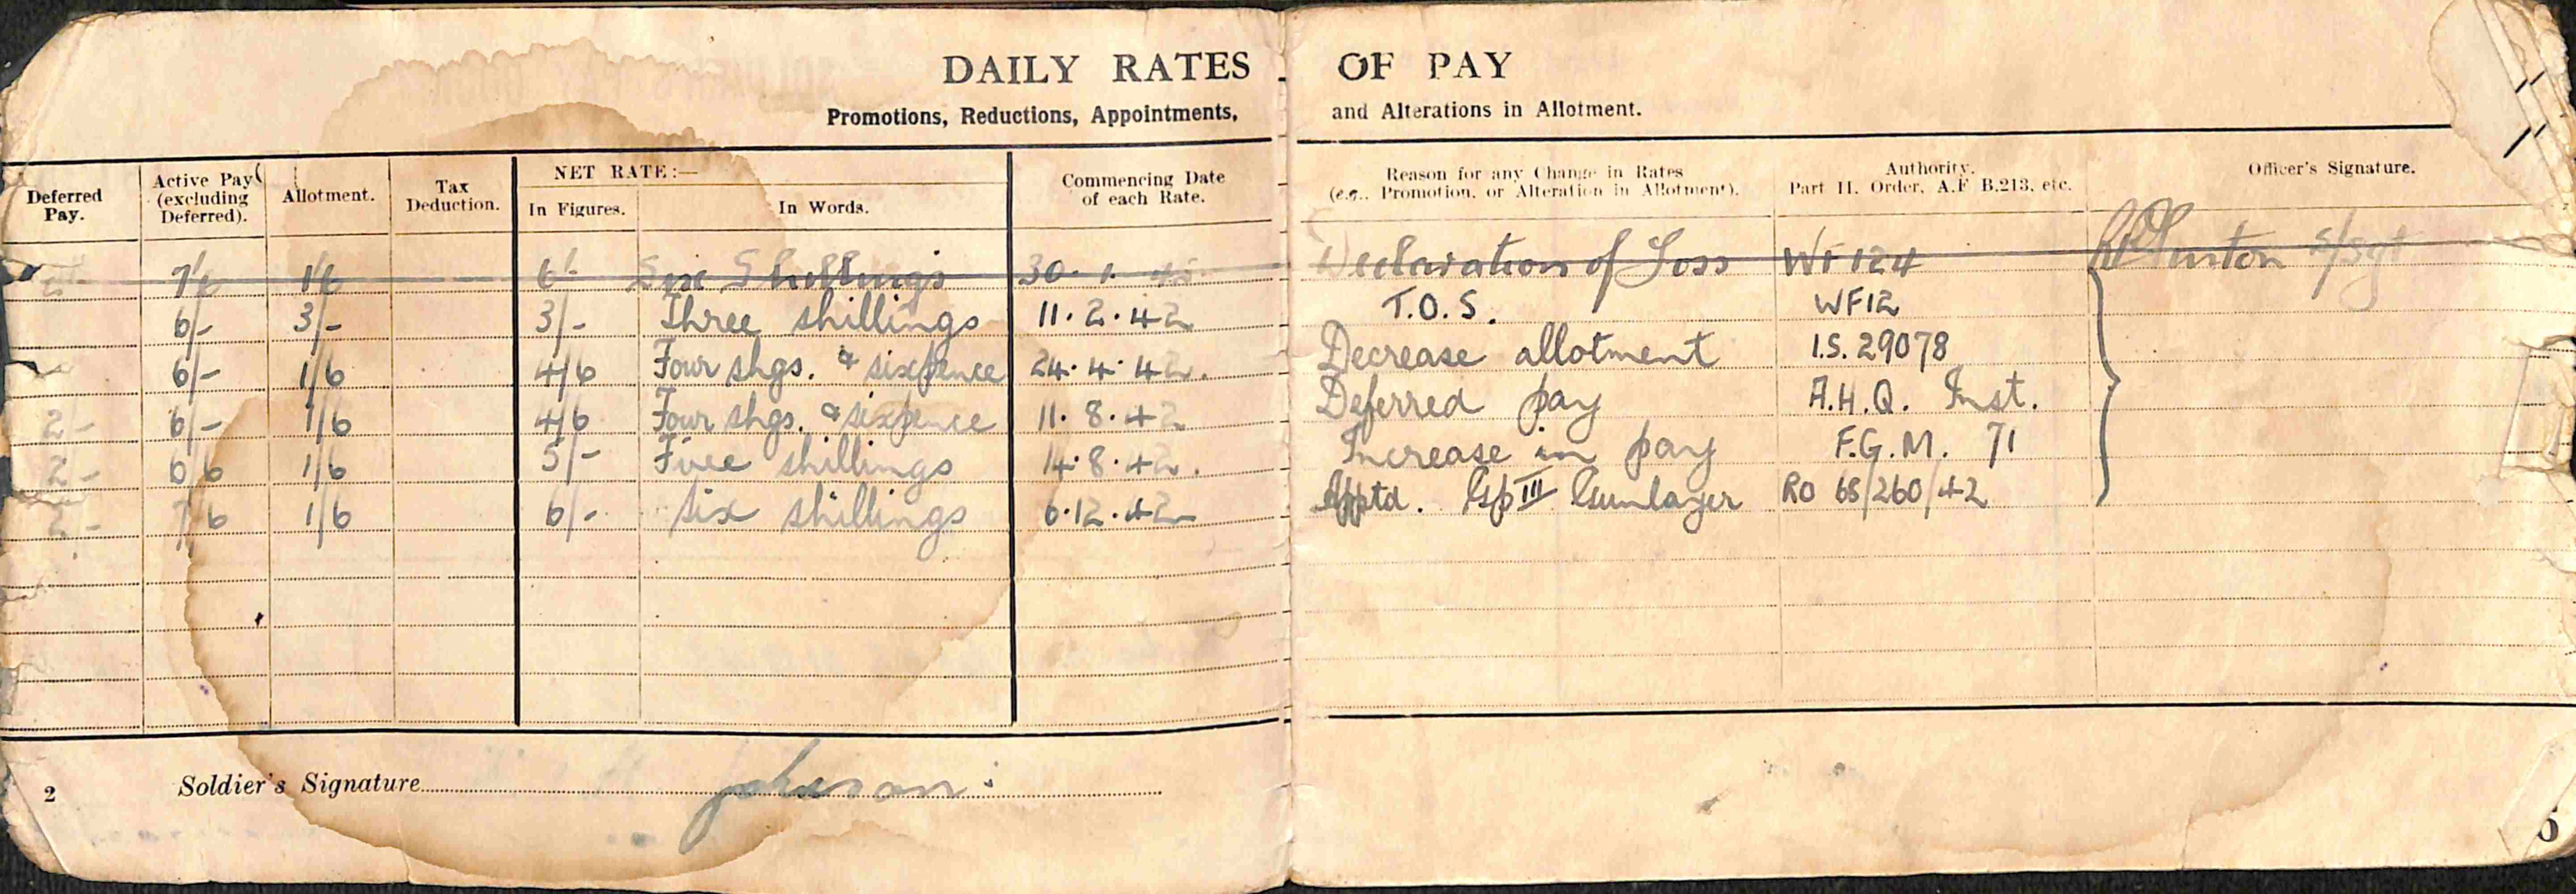 DAILY RATES OF PAY
Promotions, Reductions, Appointments, and Alterations in Allotment.
Deferred Pay. Active Pay (excluding Deferred). Allotment. Tax Deduction. NET RATE:— In Figures. In Words. Commencing Date of each Rate. Reason for any Change in Rates (e.g., Promotion, or Alteration in Allotment). Authority. Part II. Order, A.F. B.213, etc. Officer's Signature.
7/6 1/6 6/- Six Shillings 30. 1. Declaration of Loss WF 124 S/Sgt
6/- 3/- 3/- Three shillings 11. 2. 42 T.O.S. WF12
6/- 1/6 4/6 Four shgs. & sixpence 24. 4. 42. Decrease allotment I.S. 29078
2/- 6/- 1/6 4/6 Four shgs. & sixpence 11. 8. 42 Deferred pay A.H.Q. Inst.
2/- 6/6 1/6 5/- Five shillings 14. 8. 42. Increase in pay F.G.M. 71
2/- 7/6 1/6 6/- Six shillings 6.12.42 Apptd. Gp III Gunlayer RO 68/260/42
Soldier's Signature Johnson
2